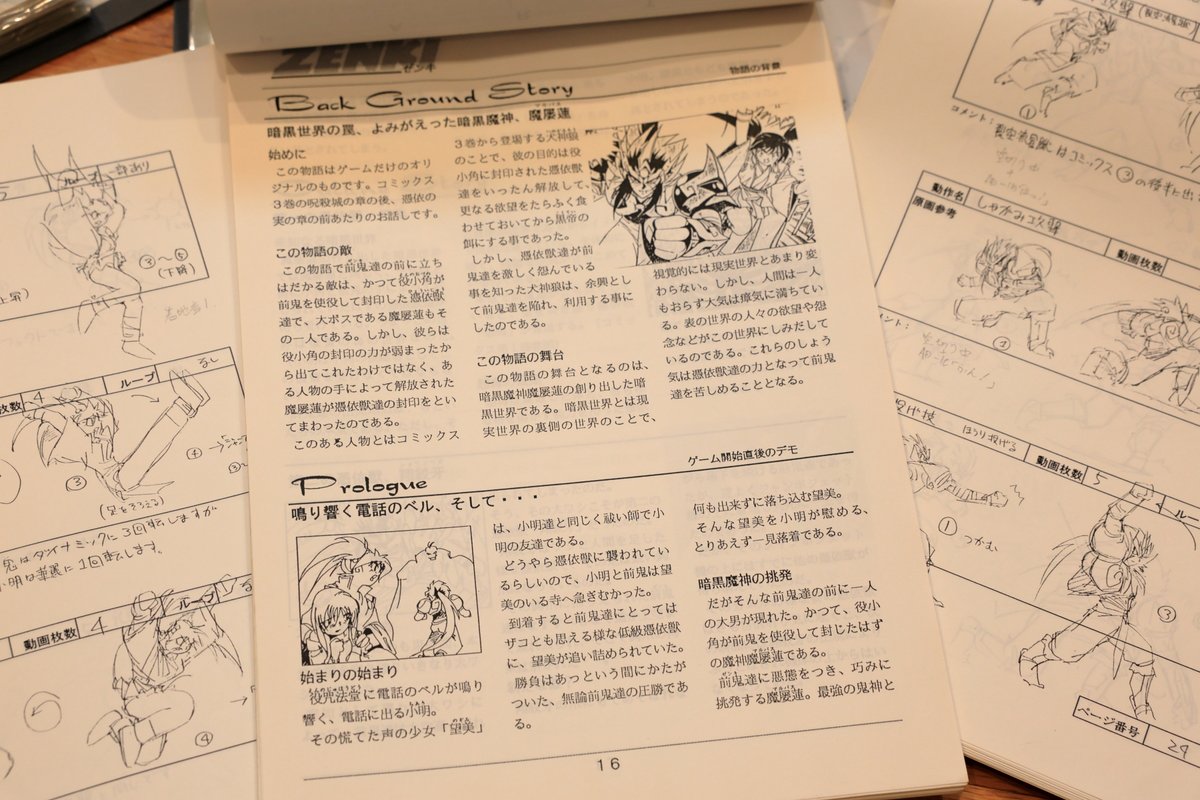 ZENKI
ゼンキ
物語の背景
Back Ground Story
暗黒世界の罠、よみがえった暗黒魔神、魔屡蓮
始めに
この物語はゲームだけのオリ
ジナルのものです。コミックス
3巻の呪殺城の章の後、憑依の
実の章の前あたりのお話しです。
この物語の敵
この物語で前鬼達の前に立ち
はだかる敵は、かつて役小角が
前鬼を使役して封印した憑依獣
達で、大ボスである魔屡蓮もそ
の一人である。しかし、彼らは
役小角の封印の力が弱まったか
ら出てこれたわけではなく、あ
る人物の手によって解放された
魔屡蓮が憑依獣達の封印をとい
てまわったのである。
このある人物とはコミックス
3巻から登場する犬神狼
のことで、彼の目的は役
小角に封印された憑依獣
達をいったん解放して、
更なる欲望をたらふく食
わせておいてから黒帝の
餌にする事であった。
しかし、憑依獣達が前
鬼達を激しく怨んでいる
事を知った犬神狼は、余興とし
て前鬼達を陥れ、利用する事に
したのである。
この物語の舞台
この物語の舞台となるのは、
暗黒魔神魔屡蓮の創り出した暗
黒世界である。暗黒世界とは現
実世界の裏側の世界のことで、
視覚的には現実世界とあまり変
わらない。しかし、人間は一人
もおらず大気は瘴気に満ちてい
る。表の世界の人々の欲望や怨
念などがこの世界にしみだして
いるのである。これらのしょう
気は憑依獣達の力となって前鬼
達を苦しめることとなる。
ゲーム開始直後のデモ
Prologue
鳴り響く電話のベル、そして・・・
始まりの始まり
役咒法蓮に電話のベルが鳴り
響く、電話に出る小明。
その慌てた声の少女「望美」
は、小明達と同じく祓い師で小
明の友達である。
どうやら憑依獣に襲われてい
るらしいので、小明と前鬼は望
美のいる寺へ急ぎむかった。
到着すると前鬼達にとっては
ザコとも思える様な低級憑依獣
に、望美が追い詰められていた。
勝負はあっという間にかたが
ついた、無論前鬼達の圧勝であ
る。
何も出来ずに落ち込む望美。
そんな望美を小明が慰める、
とりあえず一見落着である。
暗黒魔神の挑発
だがそんな前鬼達の前に一人
の大男が現れた。かつて、役小
角が前鬼を使役して封じたはず
の魔神魔屡蓮である。
前鬼達に悪態をつき、巧みに
挑発する魔屡蓮。最強の鬼神と
16
ループ
③〜⑤
(下顔)
枚数 4 ループ なし
③
④
(足をそろえる)
鬼はダイナミックに3回転しますが
小明は華麗に1回転します。
動画枚数 4 ループ
④
①
コメント:
動作名 しゃがみ攻撃
原画参考
動画枚数
①
投げ技 ほうり投げる
動画枚数 5 ルー
① つかむ
③
ページ番号 29